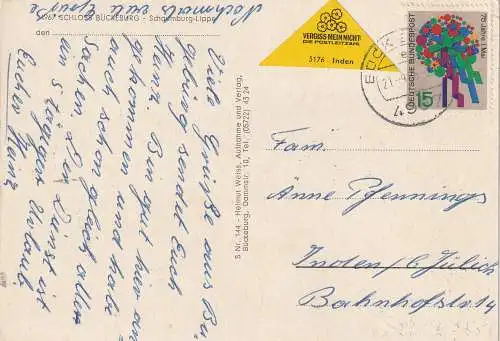 4967 SCHLOSS BÜCKEBURG - Schaumburg-Lippe
den
Nochmals viele Grüße
Viele Grüße aus Bü-
ckeburg sendet Euch
Heinz. Bin gut hier an
gekommen und habe
auch schon gleich alle
Sachen. Der Dunst ist
Urlaub
Euer Heinz
S Nr. 144 - Helmut Weiss, Aufnahme und Verlag,
Bückeburg, Dammstr. 10, Tel. (05722) 45 24
VERGISS MEIN NICHT
DIE POSTLEITZAHL
5176 Inden
DEUTSCHE BUNDESPOST
75 Jahre 1. Mai
15
Fam.
Änne Pfennings
Inden b/Jülich
Bahnhofstr 14